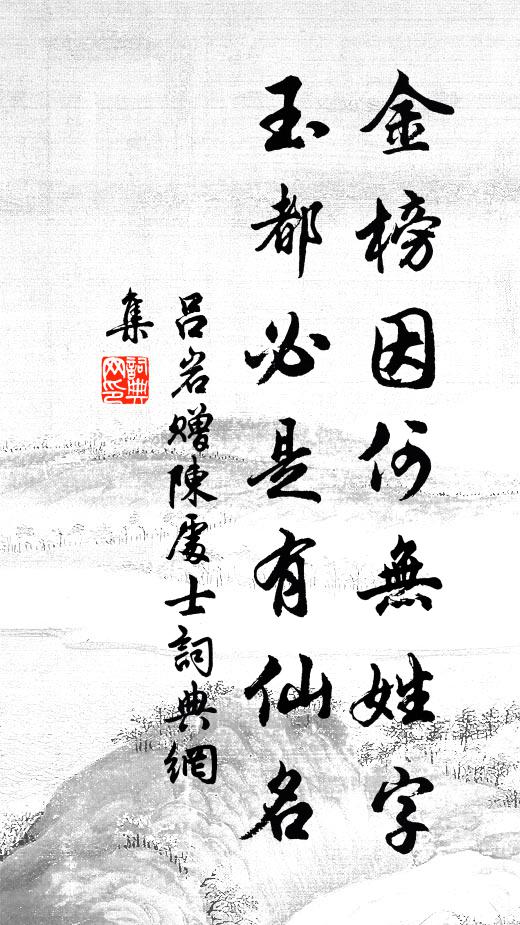 金榜因何無姓字
玉都必是有仙名
呂岩贈陳處士詞典網
集
詞典
网印